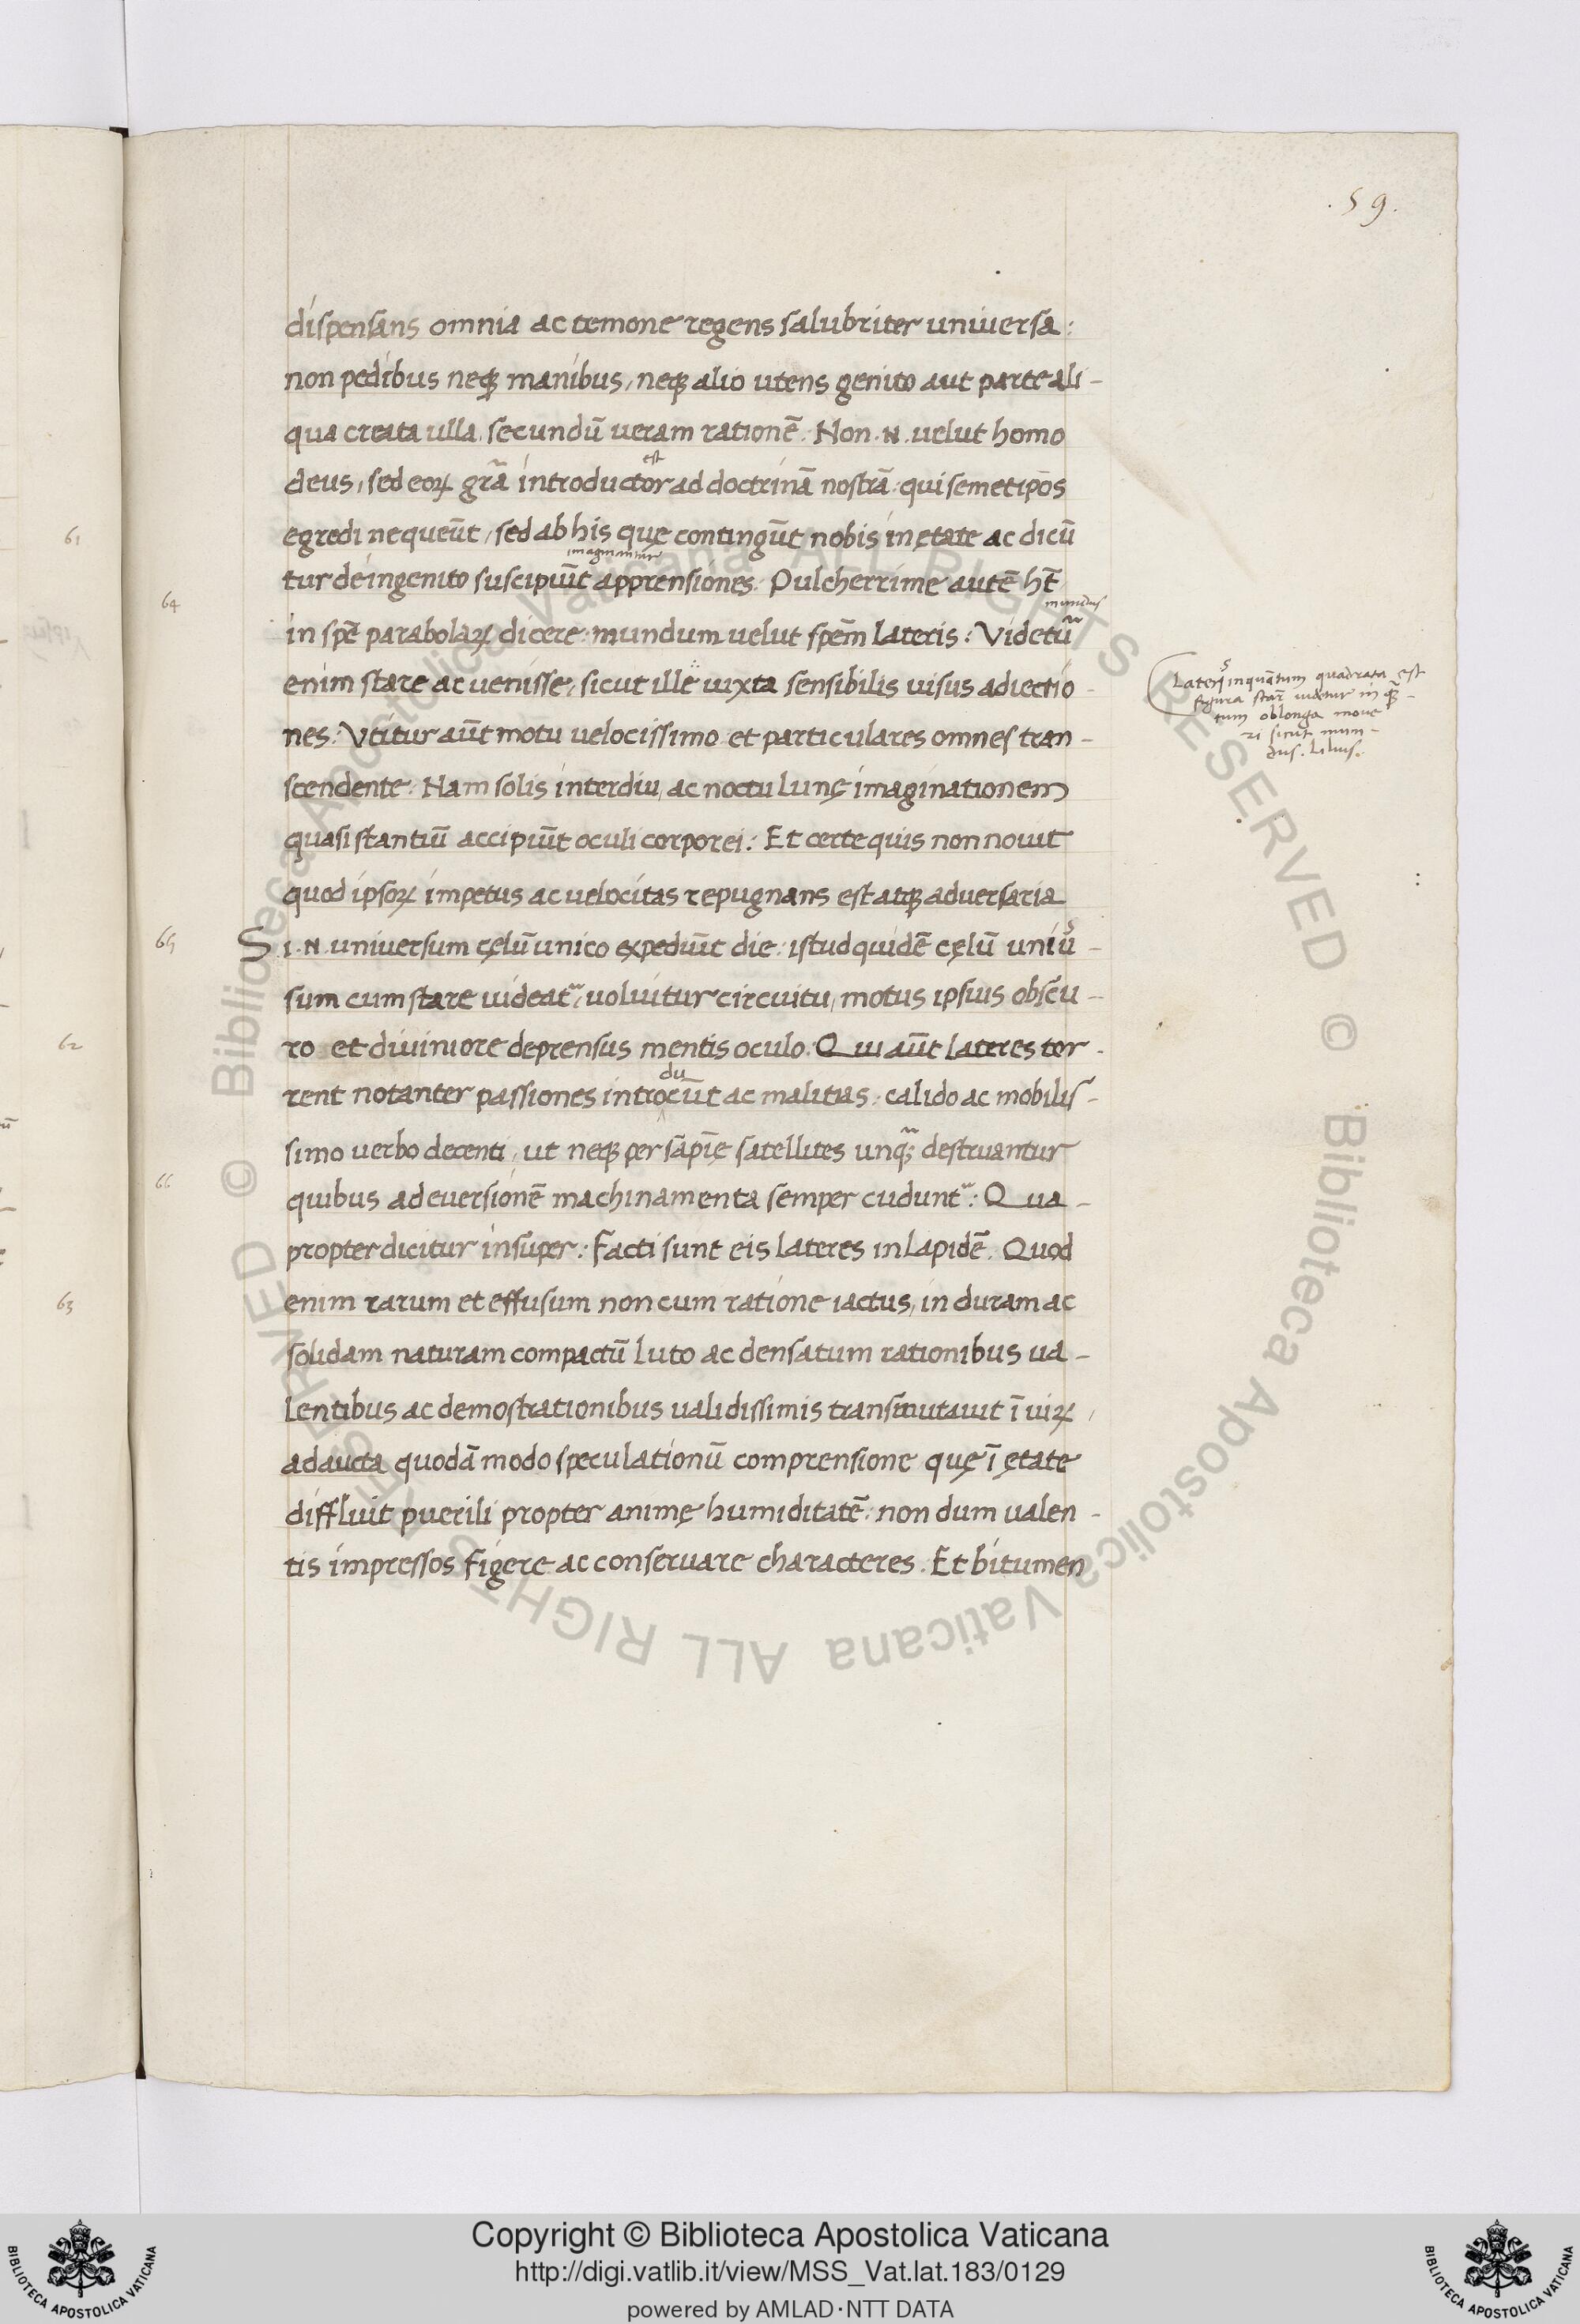 .59.
dispensans omnia ac temone regens salubriter uniuersa:
non pedibus neqꝫ manibus, neqꝫ alio utens genito aut parte ali-
qua creata ulla, secundū ueram rationē. Non .N. uelut homo
est
deus, sed eoꝝ grā introductor ad doctrinā nostrā: qui semetipōs
61
egredi nequeūt, sed ab his quę contingūt nobis in ętate ac dicū
imaginantur
tur de ingenito suscipiūt apprensiones. Pulcherrime autē hēt
64
mundus
in spē parabolaꝝ dicere: mundum uelut spēm lateris: Videtur̄
enim stare ac uenisse, sicut ille iuxta sensibilis uisus adiectio-
Laterꝰ inquātum quadrata est
figura star̄ uidetur in qꝫ-
tum oblonga moue
ri sicut mun-
dus. Lilius.
nes: Vtitur aūt motu uelocissimo et particulares omnes tran-
scendente: Nam solis interdiu, ac noctu lunę imaginationem
quasi stantiū accipiūt oculi corporei: Et certe quis non nouit
quod ipsoꝝ impetus ac uelocitas repugnans est atqꝫ aduersaria
65
Si .N. uniuersum cęlū unico expediūt die: istud quidē cęlū uniū-
sum cum stare uideat̃, uoluitur circuitu, motus ipsius obscu-
62
ro et diuiniore deprensus mentis oculo. Qui aūt lateres tor-
du
rent notanter passiones introcūt ac malitias: calido ac mobilis-
simo uerbo decenti, ut neqꝫ per sāpīę satellites unqꝫ̃ destruantur
66
quibus ad euersionē machinamenta semper cudunt̃: Qua-
propter dicitur insuper: Facti sunt eis lateres in lapidē. Quod
63
enim rarum et effusum non cum ratione iactus, in duram ac
solidam naturam compactū luto ac densatum rationibus ua-
lentibus ac demostrationibus ualidissimis transmutauit ī uiꝝ,
adaucta quodā modo speculationū comprensione quę ī ętate
diffluit puerili propter animę humiditatē: non dum ualen-
tis impressos figere ac conseruare characteres. Et bitumen
© Biblioteca Apostolica Vaticana ALL RIGHTS RESERVED © Biblioteca Apostolica Vaticana ALL RIGHTS RESERVED
Copyright © Biblioteca Apostolica Vaticana
http://digi.vatlib.it/view/MSS_Vat.lat.183/0129
powered by AMLAD·NTT DATA
BIBLIOTECA APOSTOLICA VATICANA
BIBLIOTECA APOSTOLICA VATICANA